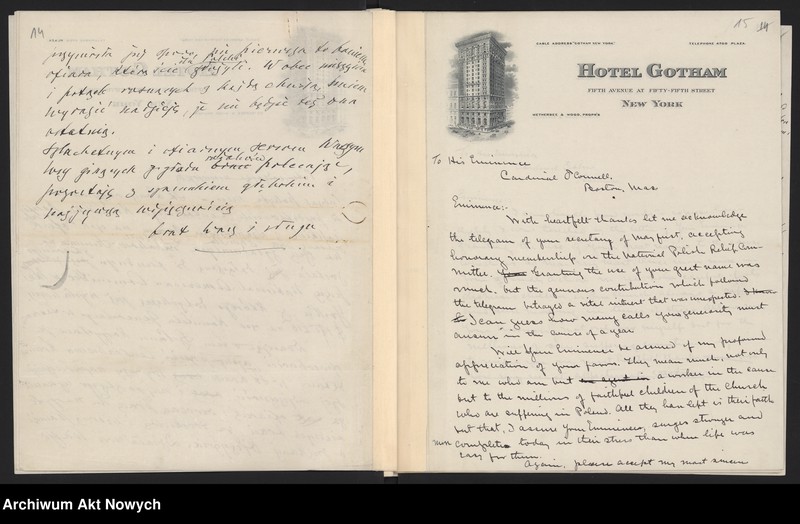 14
ofiara, którą
i potrzeb rosnących z każdą chwilą, śmiem
wyrazić nadzieję, że nie będzie też ona
ostatnią.
Szlachetnym i ofiarnym sercom Waszym
losy ginących z głodu rodaków polecając,
pozostaję z szacunkiem głębokim i
najżywszą wdzięcznością
brat Wasz i sługa
15 14
CABLE ADDRESS "GOTHAM NEW YORK"
TELEPHONE 8700 PLAZA
HOTEL GOTHAM
FIFTH AVENUE AT FIFTY-FIFTH STREET
NEW YORK
WETHERBEE & WOOD, PROP'R'S
To His Eminence
Cardinal O'Connell.
Boston, Mass
Eminence:-
With heartfelt thanks let me acknowledge
the telegram of your secretary of May first, accepting
honorary membership on the National Polish Relief Com-
mittee. Granting the use of your great name was
much, but the generous contribution which followed
the telegram betrayed a vital interest that was unexpected.
I can guess how many calls your generosity must
answer in the course of a year
Will Your Eminence be assured of my profound
appreciation of your favors. They mean much, not only
to me who am but a worker in the cause
but to the millions of faithful children of the Church
who are suffering in Poland. All they have left is their faith
but that, I assure Your Eminence, surges stronger and
more complete today in their stress than when life was
easy for them.
Again, please accept my most sincere
Archiwum Akt Nowych